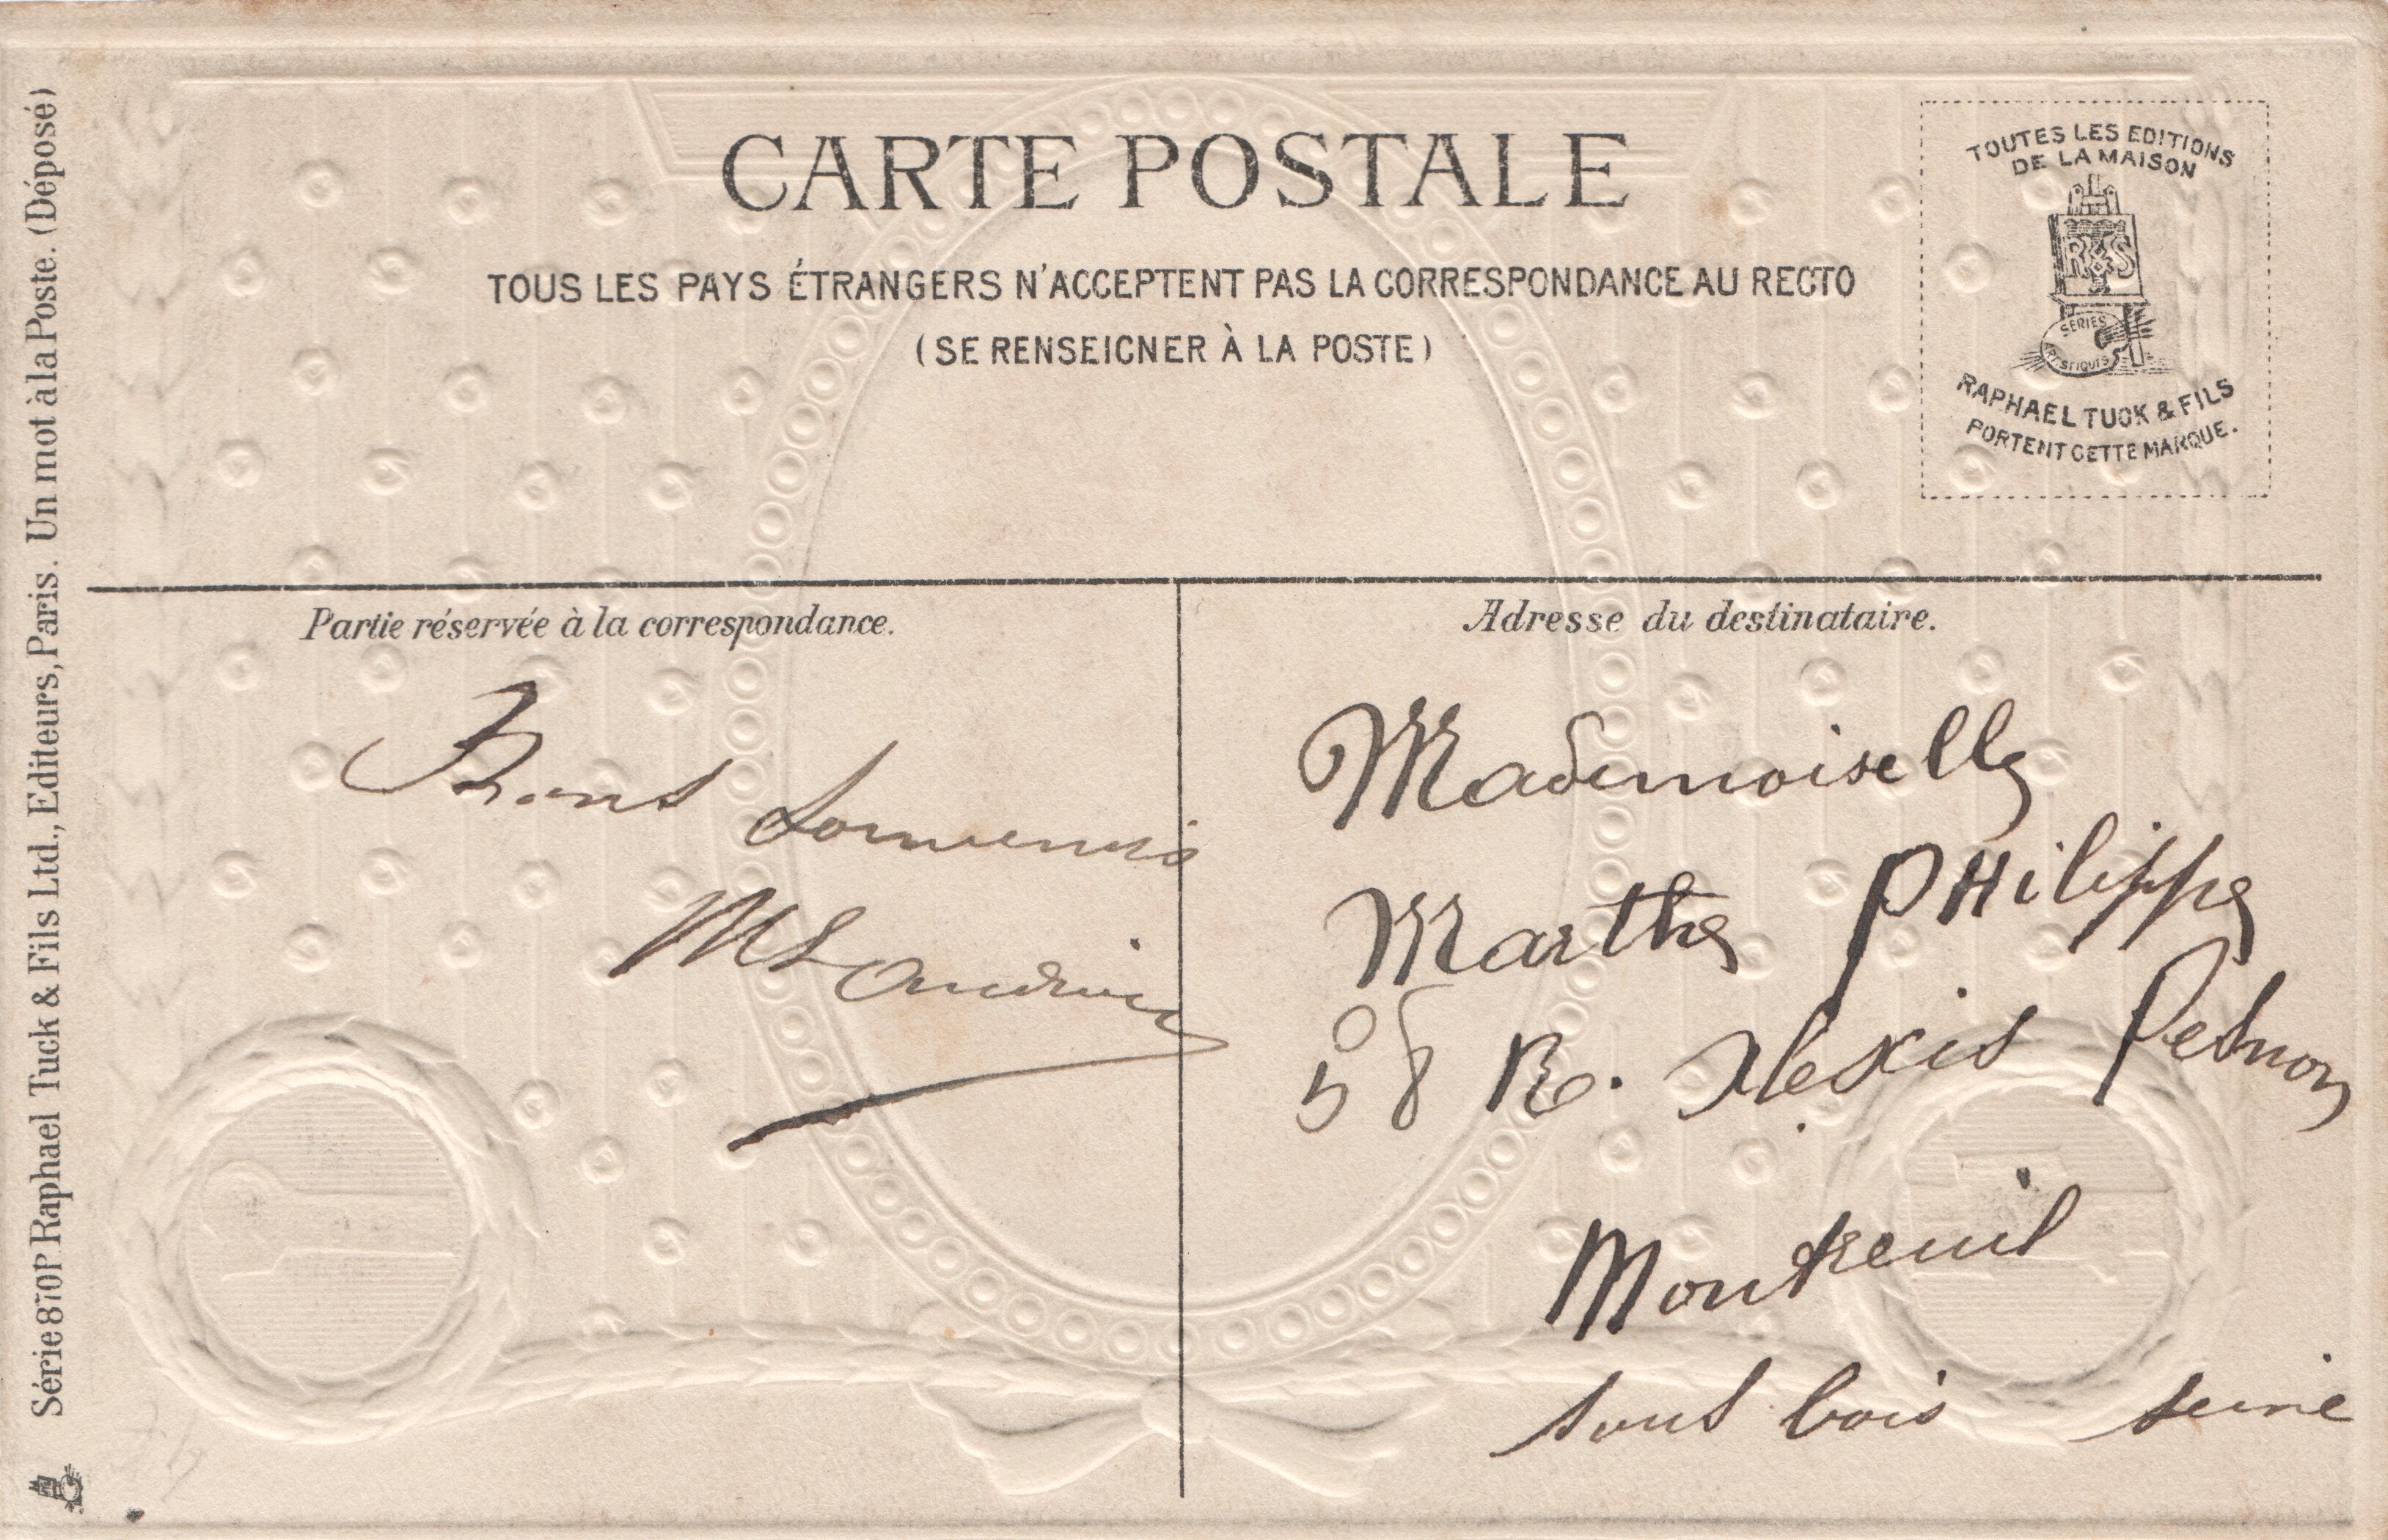 CARTE POSTALE
TOUS LES PAYS ÉTRANGERS N'ACCEPTENT PAS LA CORRESPONDANCE AU RECTO
(SE RENSEIGNER À LA POSTE)
TOUTES LES EDITIONS
DE LA MAISON
R & S
SERIES
ARTISTIQUES
RAPHAEL TUCK & FILS
PORTENT CETTE MARQUE.
Série 870P Raphael Tuck & Fils Ltd., Editeurs, Paris. Un mot à la Poste. (Déposé)
Partie réservée à la correspondance.
Bons Souvenirs
Adresse du destinataire.
Mademoiselle
Marthe PHilippe
58 R. Alexis Pesnon
Montreuil
sous bois seine